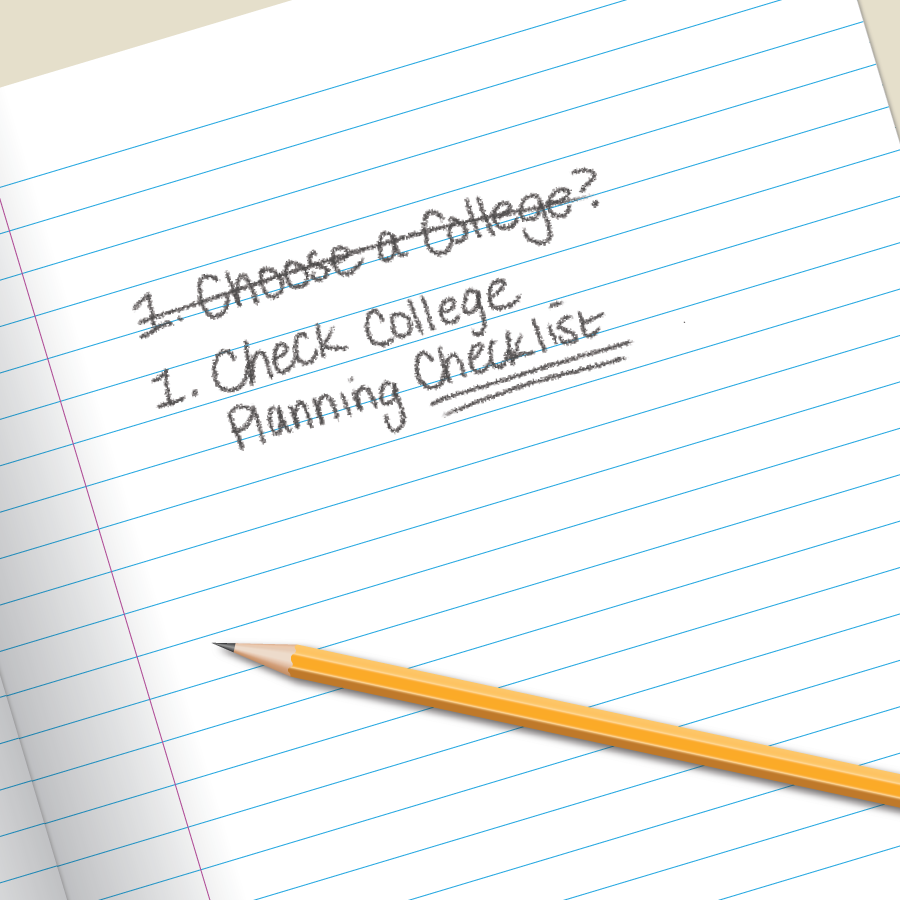 1. Choose a College?
1. Check College
Planning Checklist